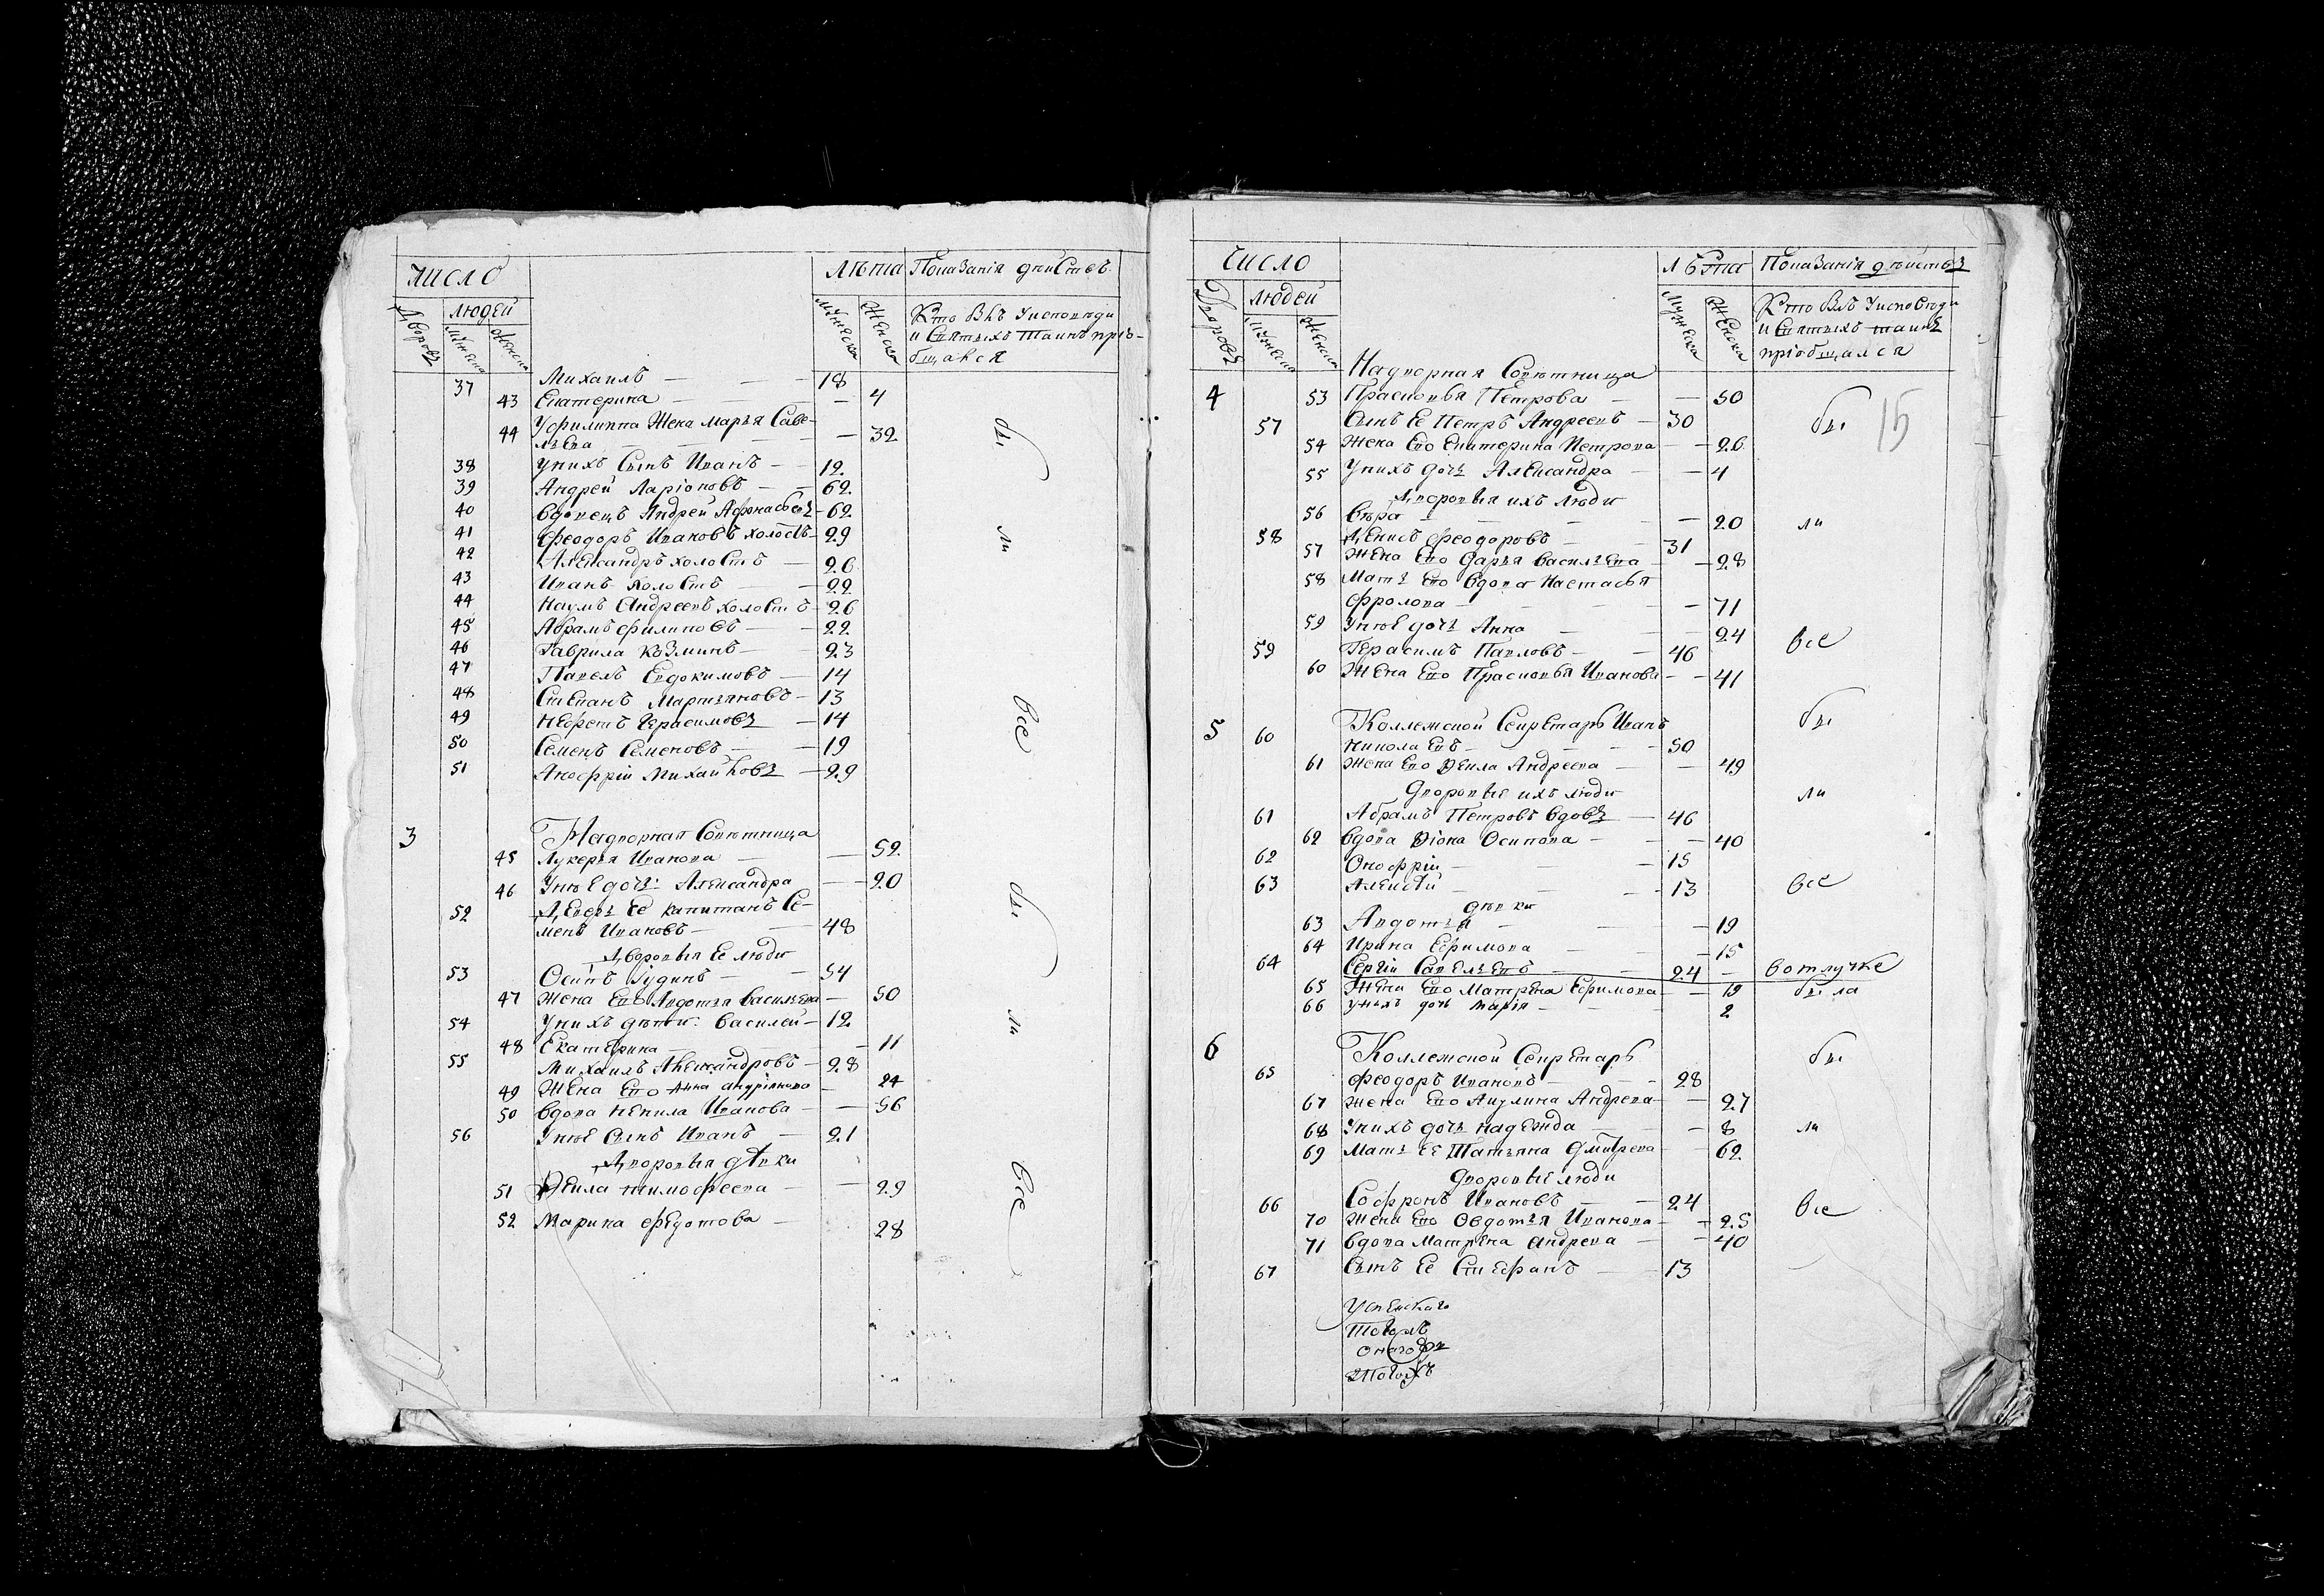 число
лѣта Показанія дѣйствъ
людей
Дворовъ
мужеска
женска
мужеска
женска
Кто Былъ Уисповѣди
и Святыхъ Таинъ прiо-
бщался
37 Михаилъ — 18
43 Екатерина — 4
44 Уфилиппа Жена Марья Саве-
лъева — 32
38 Унихъ Сынъ Иванъ — 12
39 Андрей Ларіоновъ — 62
40 Вдовецъ Андрей Афонасьевъ — 62
41 Феодоръ Ивановъ холостъ — 29
42 Александръ холостъ — 26
43 Иванъ холостъ — 22
44 Наумъ Андреевъ холостъ — 26
45 Абрамъ филиповъ — 22
46 Гаврила Кузминъ — 23
47 Павелъ Евдокимовъ — 14
48 Степанъ Мартьяновъ — 13
49 Неофетъ Герасимовъ — 14
50 Семенъ Семеновъ — 19
51 Анофрій Михайловъ — 29
бы
ли
все
3 Надворная Совѣтница
45 Лукерья Иванова — 52
46 Унюе дочь Александра — 20
52 Деверь Ее капитанъ Се-
менъ Ивановъ — 48
Дворовыя Ее люди
53 Осипъ Іудинъ — 54
47 Жена Ево Авдотья Васильева — 50
54 Унихъ дѣти: Василей — 12
48 Екатерина — 11
55 Михаилъ Александровъ — 28
49 Жена Ево Анна андріянова — 24
50 Вдова Ненила Иванова — 56
56 Унюе Сынъ Иванъ — 21
Дворовыя дѣвки
51 Фекла тимофеева — 29
52 Марина федотова — 28
бы
ли
все
Число
лѣта Показанія дѣйствъ
людей
Дворовъ
мужеска
женска
Мужеска
Женска
Кто Былъ Уисповѣди
и Святыхъ таинъ
пріобщался
15
Надворная Совѣтница
4 53 Прасковья Петрова — 50
57 Сынъ Ее Петръ Андреевъ — 30 бы
54 Жена Ево Екатерина Петрова — 26
55 Унихъ дочь Александра — 4
Дворовыя ихъ люди
56 Вѣра — 20 ли
58 Денисъ Феодоровъ — 31
57 Жена Ево Дарья Васильева — 28
58 Мать Ево Вдова Настасья
Фролова — 71
59 Унюе дочь Анна — 24 все
59 Герасимъ Павловъ — 46
60 Жена Ево Прасковья Иванова — 41
5 60 Коллежской Секретарь Иванъ бы
Николаевъ — 50
61 Жена Ево Фекла Андреева — 49
Дворовые ихъ люди ли
61 Абрамъ Петровъ вдовъ — 46
62 Вдова Фіона Осипова — 40
62 Онофрій — 15
63 Алексѣй — 13 все
дѣвки
63 Авдотья — 19
64 Ирина Ефимова — 15
64 Сергій Савельевъ — 24 — вотлучке
65 Жена Ево Матрена Ефимова — 19 была
66 Унихъ дочь Марія — 2
6 Коллежской Секретарь бы
65 Феодоръ Ивановъ — 28
67 Жена Ево Акулина Андрева — 27
68 Унихъ дочь надежда — 8 ли
69 Мать Ее Татьяна Дмитрева — 62
Дворовые люди
66 Софронъ Ивановъ — 24 все
70 Жена Ево Овдотья Иванова — 25
71 Вдова Матрена Андрева — 40
67 Сынъ Ее Стефанъ — 13
Успенскаго